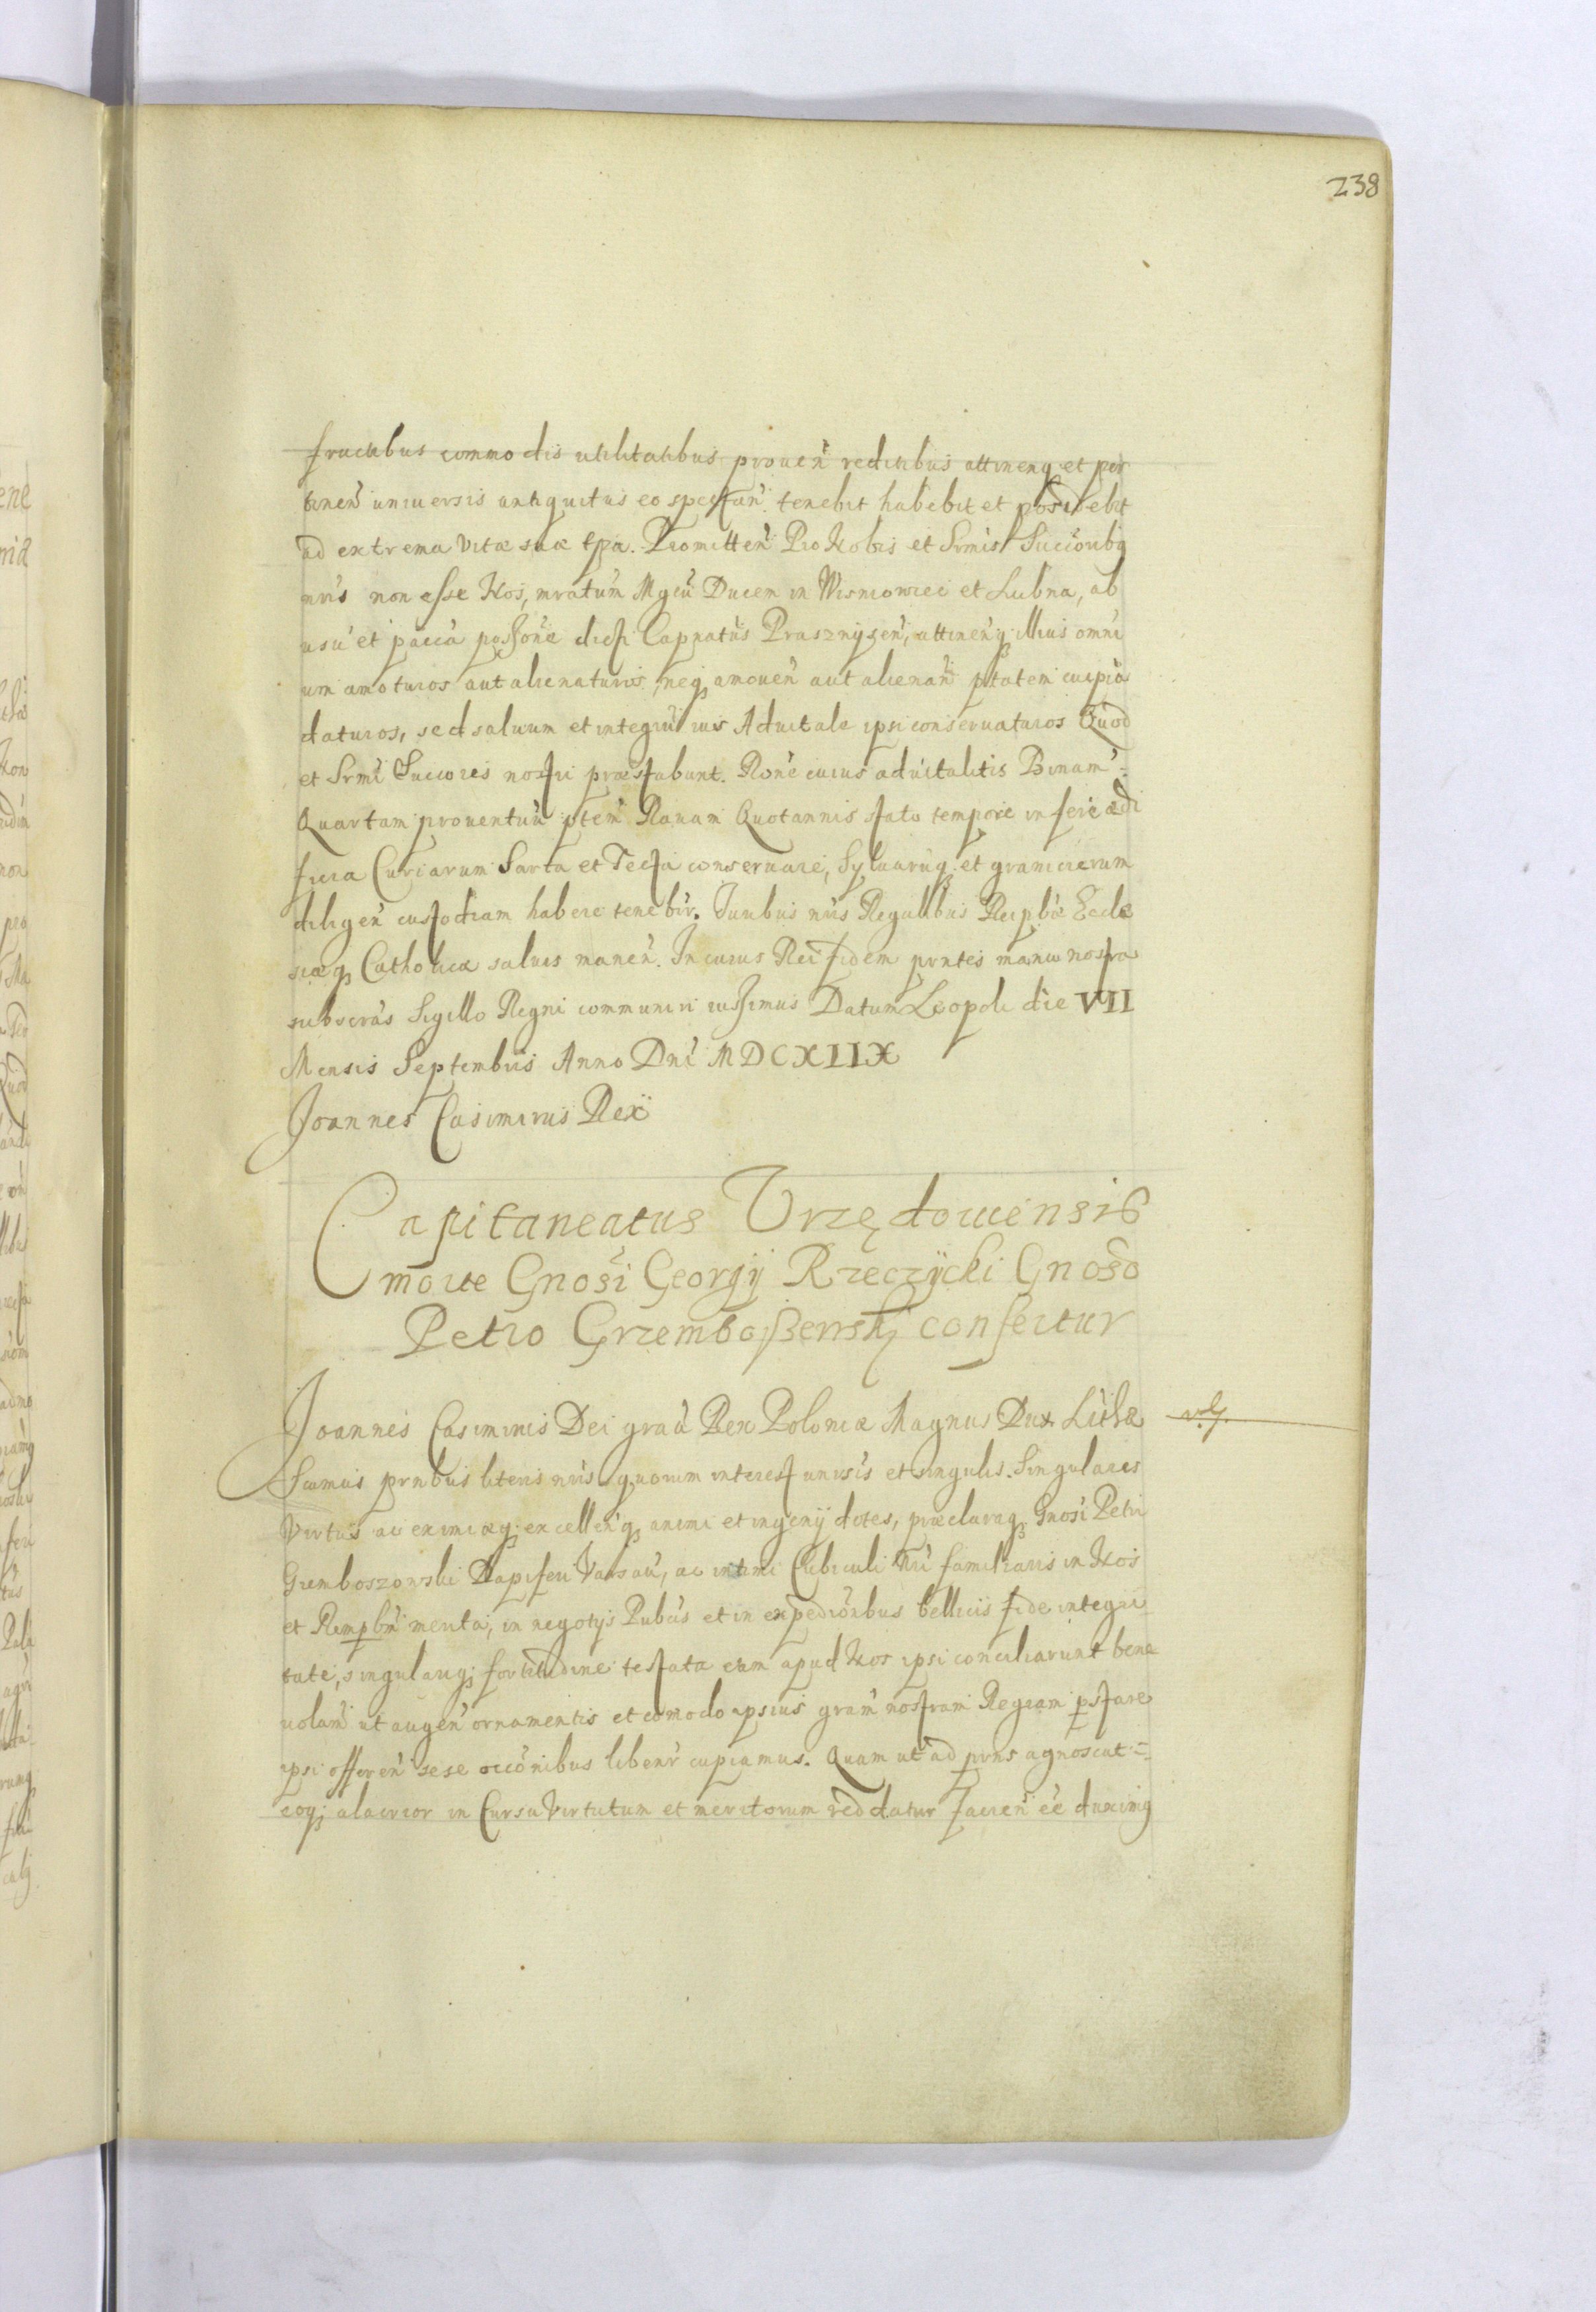 238
fructibus commodis utilitatibus proven̄ reditibus attinenq; et per
tinen̄ universis antiquitus eo spectan̄. tenebit habebit et possidebit
ad extrema vitæ suæ tp̄a. Promitten̄ Pro Nobis et Srm̄is Succōribq
nr̄is non esse Nos, mratum̄ Mgcū Ducem in Wisniowiec et Lubna, ab
usū et pāccā possōne dicti Capnatūs Prasznysen̄, attinen̄q; illius omni
um amoturos aut alienaturos, neq; amoven̄ aut alienan̄d ptatem cuipiā
daturos, sed salvum et integrū ius Advitale ipsi conservaturos Quod
et Srm̄i Succores nostri præstabunt. Rōne cuius advitalitis Binam̄
Quartam proventuū ptem̄ Ravam Quotannis stato tempore inferre ædi
ficia Curiarum Sarta et Tecta conservare, Sylvarūq; et granicierum
diligen̄ custodiam habere tenebir̄. Iuribus nr̄is Regalibus Reipbæ Eccle
siæq; Catholicæ salvis manen̄. In cuius Rei fidem prntes manu nostra
subscrās Sigillo Regni communiri iussimus Datum Leopoli die VII
Mensis Septembris Anno Dnī MDCXIIX
Joannes Casimirus Rex
Capitaneatus Vrzędowiensis
morte Gnōsi Georgÿ Rzeczÿcki Gnōso
Petro Grzemboszewskj confertur
Joannes Casimirus Dei gra͞a Rex Poloniæ Magnus Dux Lith͞æ
Sumus prnbus literis nr̄is quorum interest unisīs et singulis. Singulares
Virtūs ac eximiæq; excellen̄q; animi et ingenÿ dotes, præclaraq; Gnōsi Petri
Grzemboszowski Dapiferi Varsav̄, ac intimi Cubiculi Nr̄i familiaris in Nos
et Rempbn̄ merita, in negotÿs Pubcīs et in expediōnibus bellicis fide integri
tate, singulariq; fortitudine testata eam apud Nos ipsi conciliarunt bene
volam̄ ut augen̄ ornamentis et comodo ipsius gram̄ nostram Regiam pstare
ipsi offeren̄ sese occōnibus libenr̄ cupiamus. Quam ut ad prns agnoscat
eoq; alacrior in Cursu Virtutum et meritorum reddatur facien̄ ēe duximq